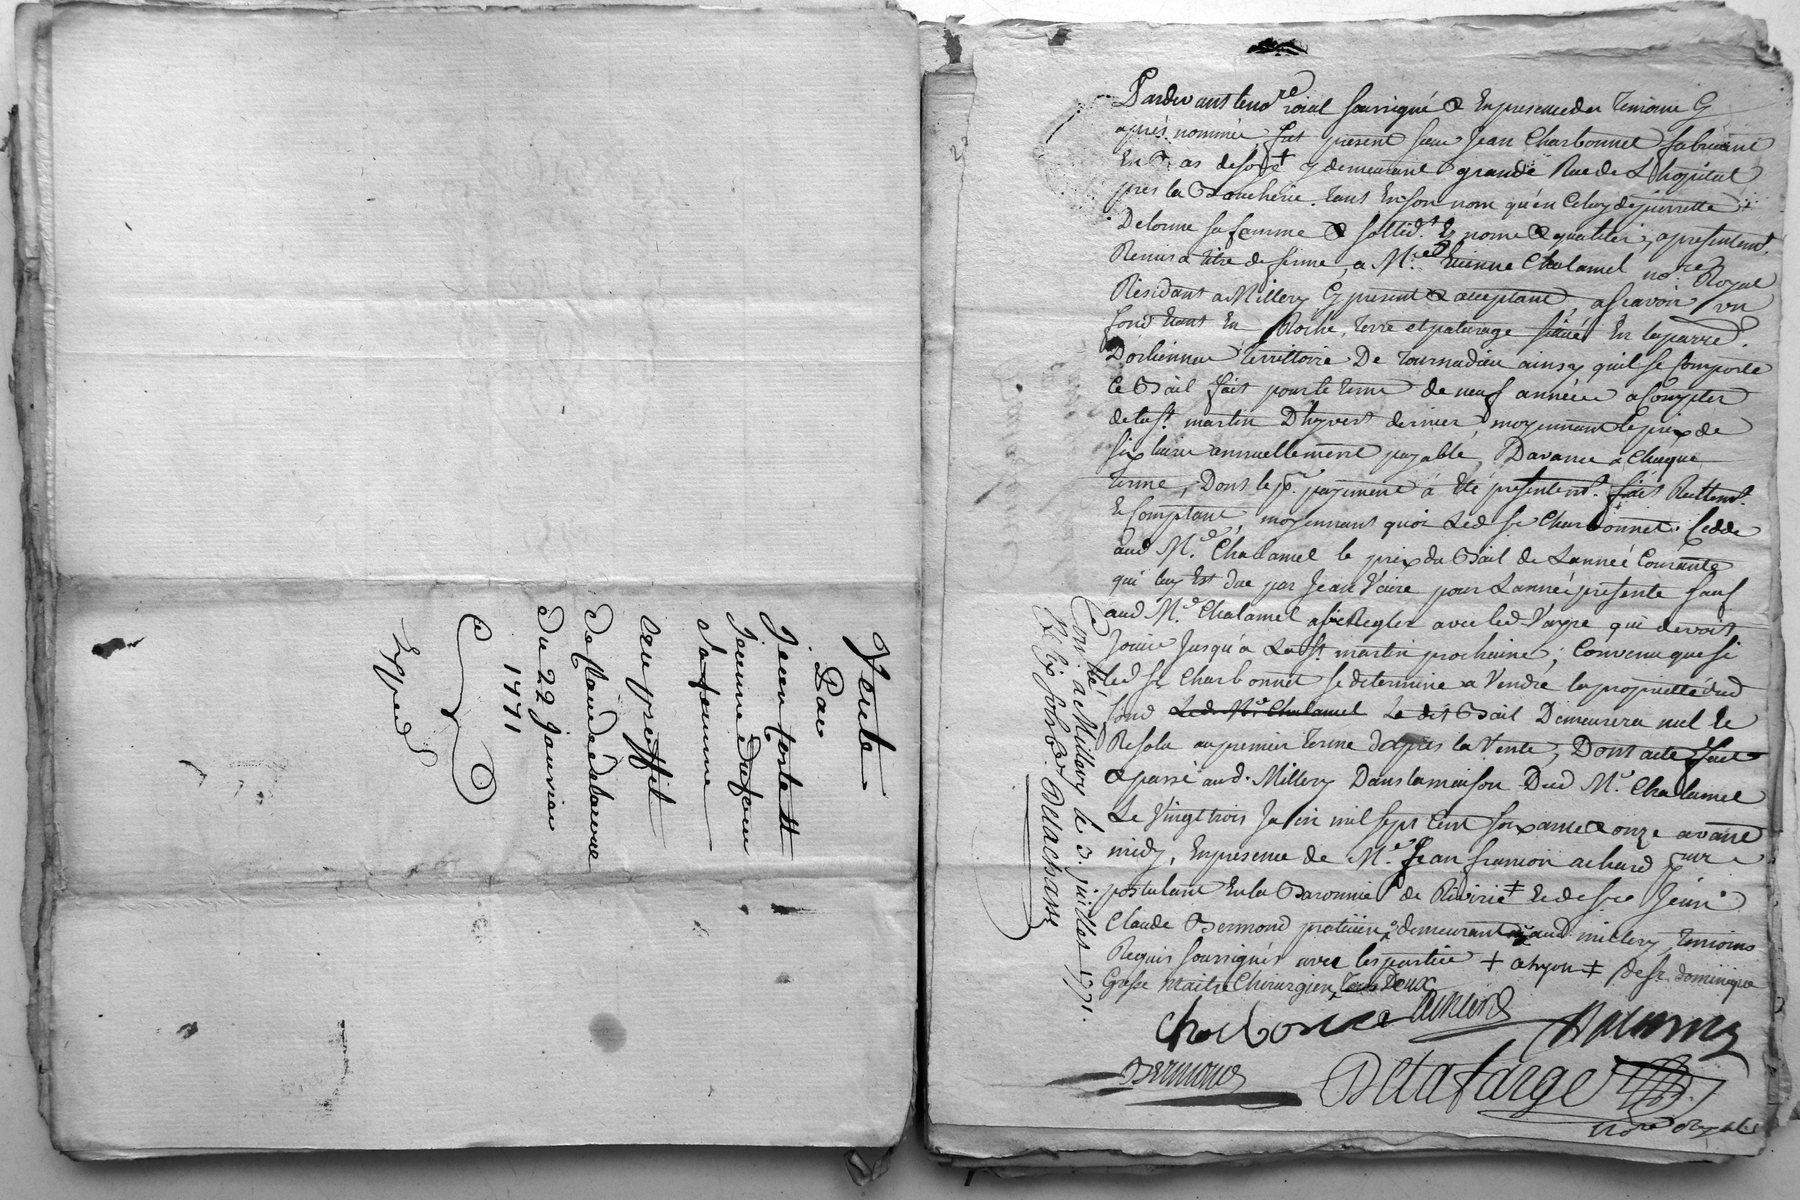 Vente
Par
Jean
Jeanne Dufour
sa femme
au proffit
de Claude delaurue
Du 22 Janvier
1771
Exped
Pardevant le no.re roial soussigné & En presence des Temoins Cy
après nommés, fut present sieur Jean Charbonnel fabricant
En Bas de y demeurant grande Rue de L'hopital
près la Boucherie tant En son nom qu'en Celuy de pierrette
Delorme sa femme & sollid.t Es noms & qualités, a presentem.t
Remis a titre de ferme, a M.e Etienne Chalamel no.re Royal
Résidant a Millery Cy present & acceptant, a scavoir un
fond tant En Roche, terre et paturage situé En la parr.e
D'orlienna territtoire De tournadieu ainsy quil se Comporte
Ce Bail fait pour le terme de neuf années a Compter
de la S.t martin D'hyvert dernier, moyennant le prix de
six livres annuellement payable D'avance a Chaque
terme, Dont le p.r payement a été presentem.t fait Reellem.t
& Comptant, moyennant quoi Led. S.r Charbonnel Cedde
aud. M.e Chalamel le prix du Bail de L'année Courante
qui luy Est due par Jean Vaire pour L'année presente sauf
aud. M.e Chalamel a se Regler avec led. Vayre qui devoit
Jouir Jusqu'a La S.t martin prochaine; Convenu que si
led. S.r Charbonnel se determine a Vendre la proprietté dud.
fond Led. M.e Chalamel Le dit Bail Demeurera nul &
Resolu au premier terme d'après la Vente, Dont acte fait
& passé aud. Millery Dans la maison Dud. M.e Chalamel
Le Vingt trois Juin mil sept Cent soixante & onze avant
midy, En presence de M.e Jean francois achard
postulant En la Baronnie de Riverie ‡ & de S.r Jean
Claude Bermond praticien demeurant aud. millery temoins
Requis soussignés avec les parties + ‡ de S.r dominique
Grosse maitre Chirurgien, tous Deux
Charbonnel achard Chalamel
Bermond Delafarge
no.re Royal
Con.lé a Millery le 3. juillet 1771.
R. Delachasse